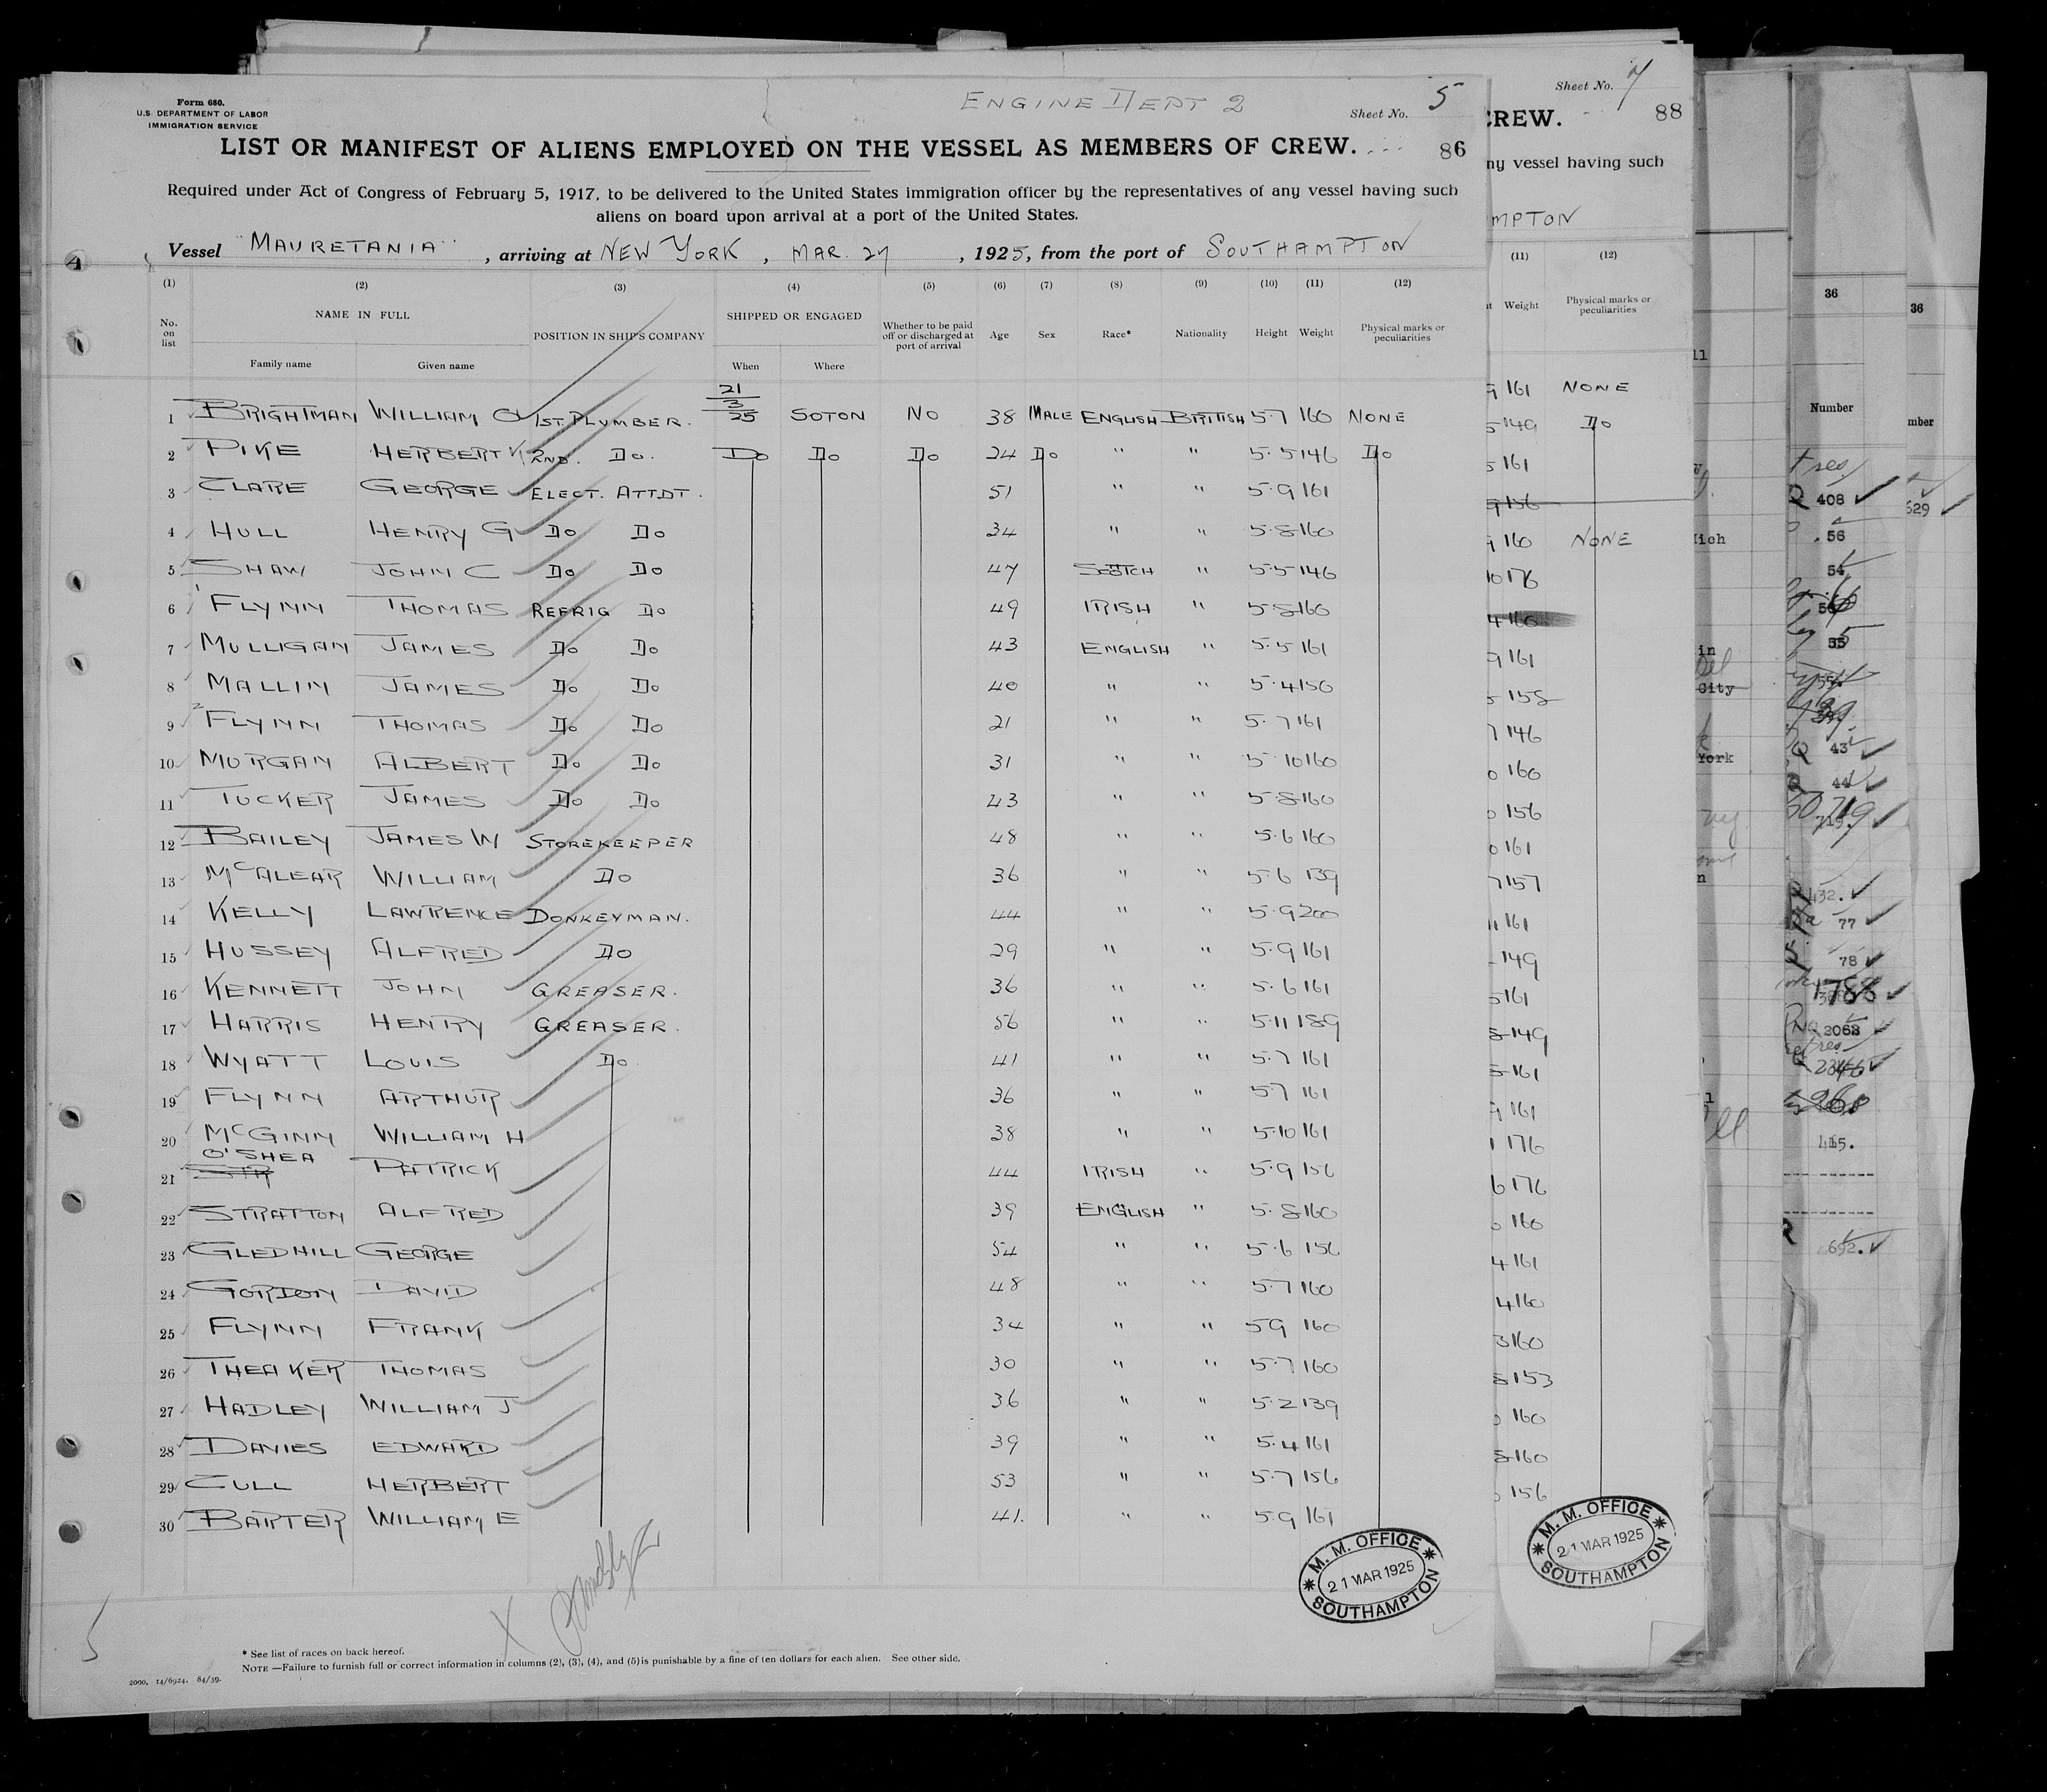 Form 680.
U.S. DEPARTMENT OF LABOR
IMMIGRATION SERVICE
ENGINE DEPT 2
Sheet No. 5
LIST OR MANIFEST OF ALIENS EMPLOYED ON THE VESSEL AS MEMBERS OF CREW.
86
Required under Act of Congress of February 5, 1917, to be delivered to the United States immigration officer by the representatives of any vessel having such
aliens on board upon arrival at a port of the United States.
Vessel "MAURETANIA", arriving at NEW YORK, MAR. 27, 1925, from the port of SOUTHAMPTON
(1) (2) (3) (4) (5) (6) (7) (8) (9) (10) (11) (12)
No. on list NAME IN FULL POSITION IN SHIP'S COMPANY SHIPPED OR ENGAGED Whether to be paid off or discharged at port of arrival Age Sex Race* Nationality Height Weight Physical marks or peculiarities
Family name Given name When Where
1 BRIGHTMAN WILLIAM O 1ST. PLUMBER. 21/3/25 SOTON NO 38 MALE ENGLISH BRITISH 5.7 160 NONE
2 PIKE HERBERT K 2ND. DO. DO DO DO 24 DO " " 5.5 146 DO
3 CLARE GEORGE ELECT. ATTDT. 51 " " 5.9 161
4 HULL HENRY G DO DO 34 " " 5.8 160
5 SHAW JOHN C DO DO 47 SCOTCH " 5.5 146
6 FLYNN THOMAS REFRIG DO 49 IRISH " 5.8 160
7 MULLIGAN JAMES DO DO 43 ENGLISH " 5.5 161
8 MALLIN JAMES DO DO 40 " " 5.4 156
9 FLYNN THOMAS DO DO 21 " " 5.7 161
10 MORGAN ALBERT DO DO 31 " " 5.10 160
11 TUCKER JAMES DO DO 43 " " 5.8 160
12 BAILEY JAMES W STOREKEEPER 48 " " 5.6 160
13 McALEAR WILLIAM DO 36 " " 5.6 139
14 KELLY LAWRENCE DONKEYMAN. 44 " " 5.9 200
15 HUSSEY ALFRED DO 29 " " 5.9 161
16 KENNETT JOHN GREASER. 36 " " 5.6 161
17 HARRIS HENRY GREASER. 56 " " 5.11 189
18 WYATT LOUIS DO 41 " " 5.7 161
19 FLYNN ARTHUR 36 " " 5.7 161
20 McGINN WILLIAM H 38 " " 5.10 161
21 O'SHEA PATRICK 44 IRISH " 5.9 156
22 STRATTON ALFRED 39 ENGLISH " 5.8 160
23 GLEDHILL GEORGE 54 " " 5.6 156
24 GORDON DAVID 48 " " 5.7 160
25 FLYNN FRANK 34 " " 5.9 160
26 THEAKER THOMAS 30 " " 5.7 160
27 HADLEY WILLIAM J 36 " " 5.2 139
28 DAVIES EDWARD 39 " " 5.4 161
29 CULL HERBERT 53 " " 5.7 156
30 BARTER WILLIAM E 41. " " 5.9 161
M. M. OFFICE
21 MAR 1925
SOUTHAMPTON
5 X
* See list of races on back hereof.
NOTE —Failure to furnish full or correct information in columns (2), (3), (4), and (5) is punishable by a fine of ten dollars for each alien. See other side.
2000. 14/6924. 84/39.
Sheet No. 7
CREW.
88
ny vessel having such
MPTON
(11) (12)
Weight Physical marks or peculiarities
161 NONE
149 DO
161
156
160 NONE
176
160
161
158
146
160
156
161
157
161
149
161
149
161
161
176
176
160
161
160
160
153
160
160
156
M. M. OFFICE
21 MAR 1925
SOUTHAMPTON
36
Number
408
56
54
55
City
43
York
44
719
432.
77
78
1788
2063
415.
692.
36
mber
629